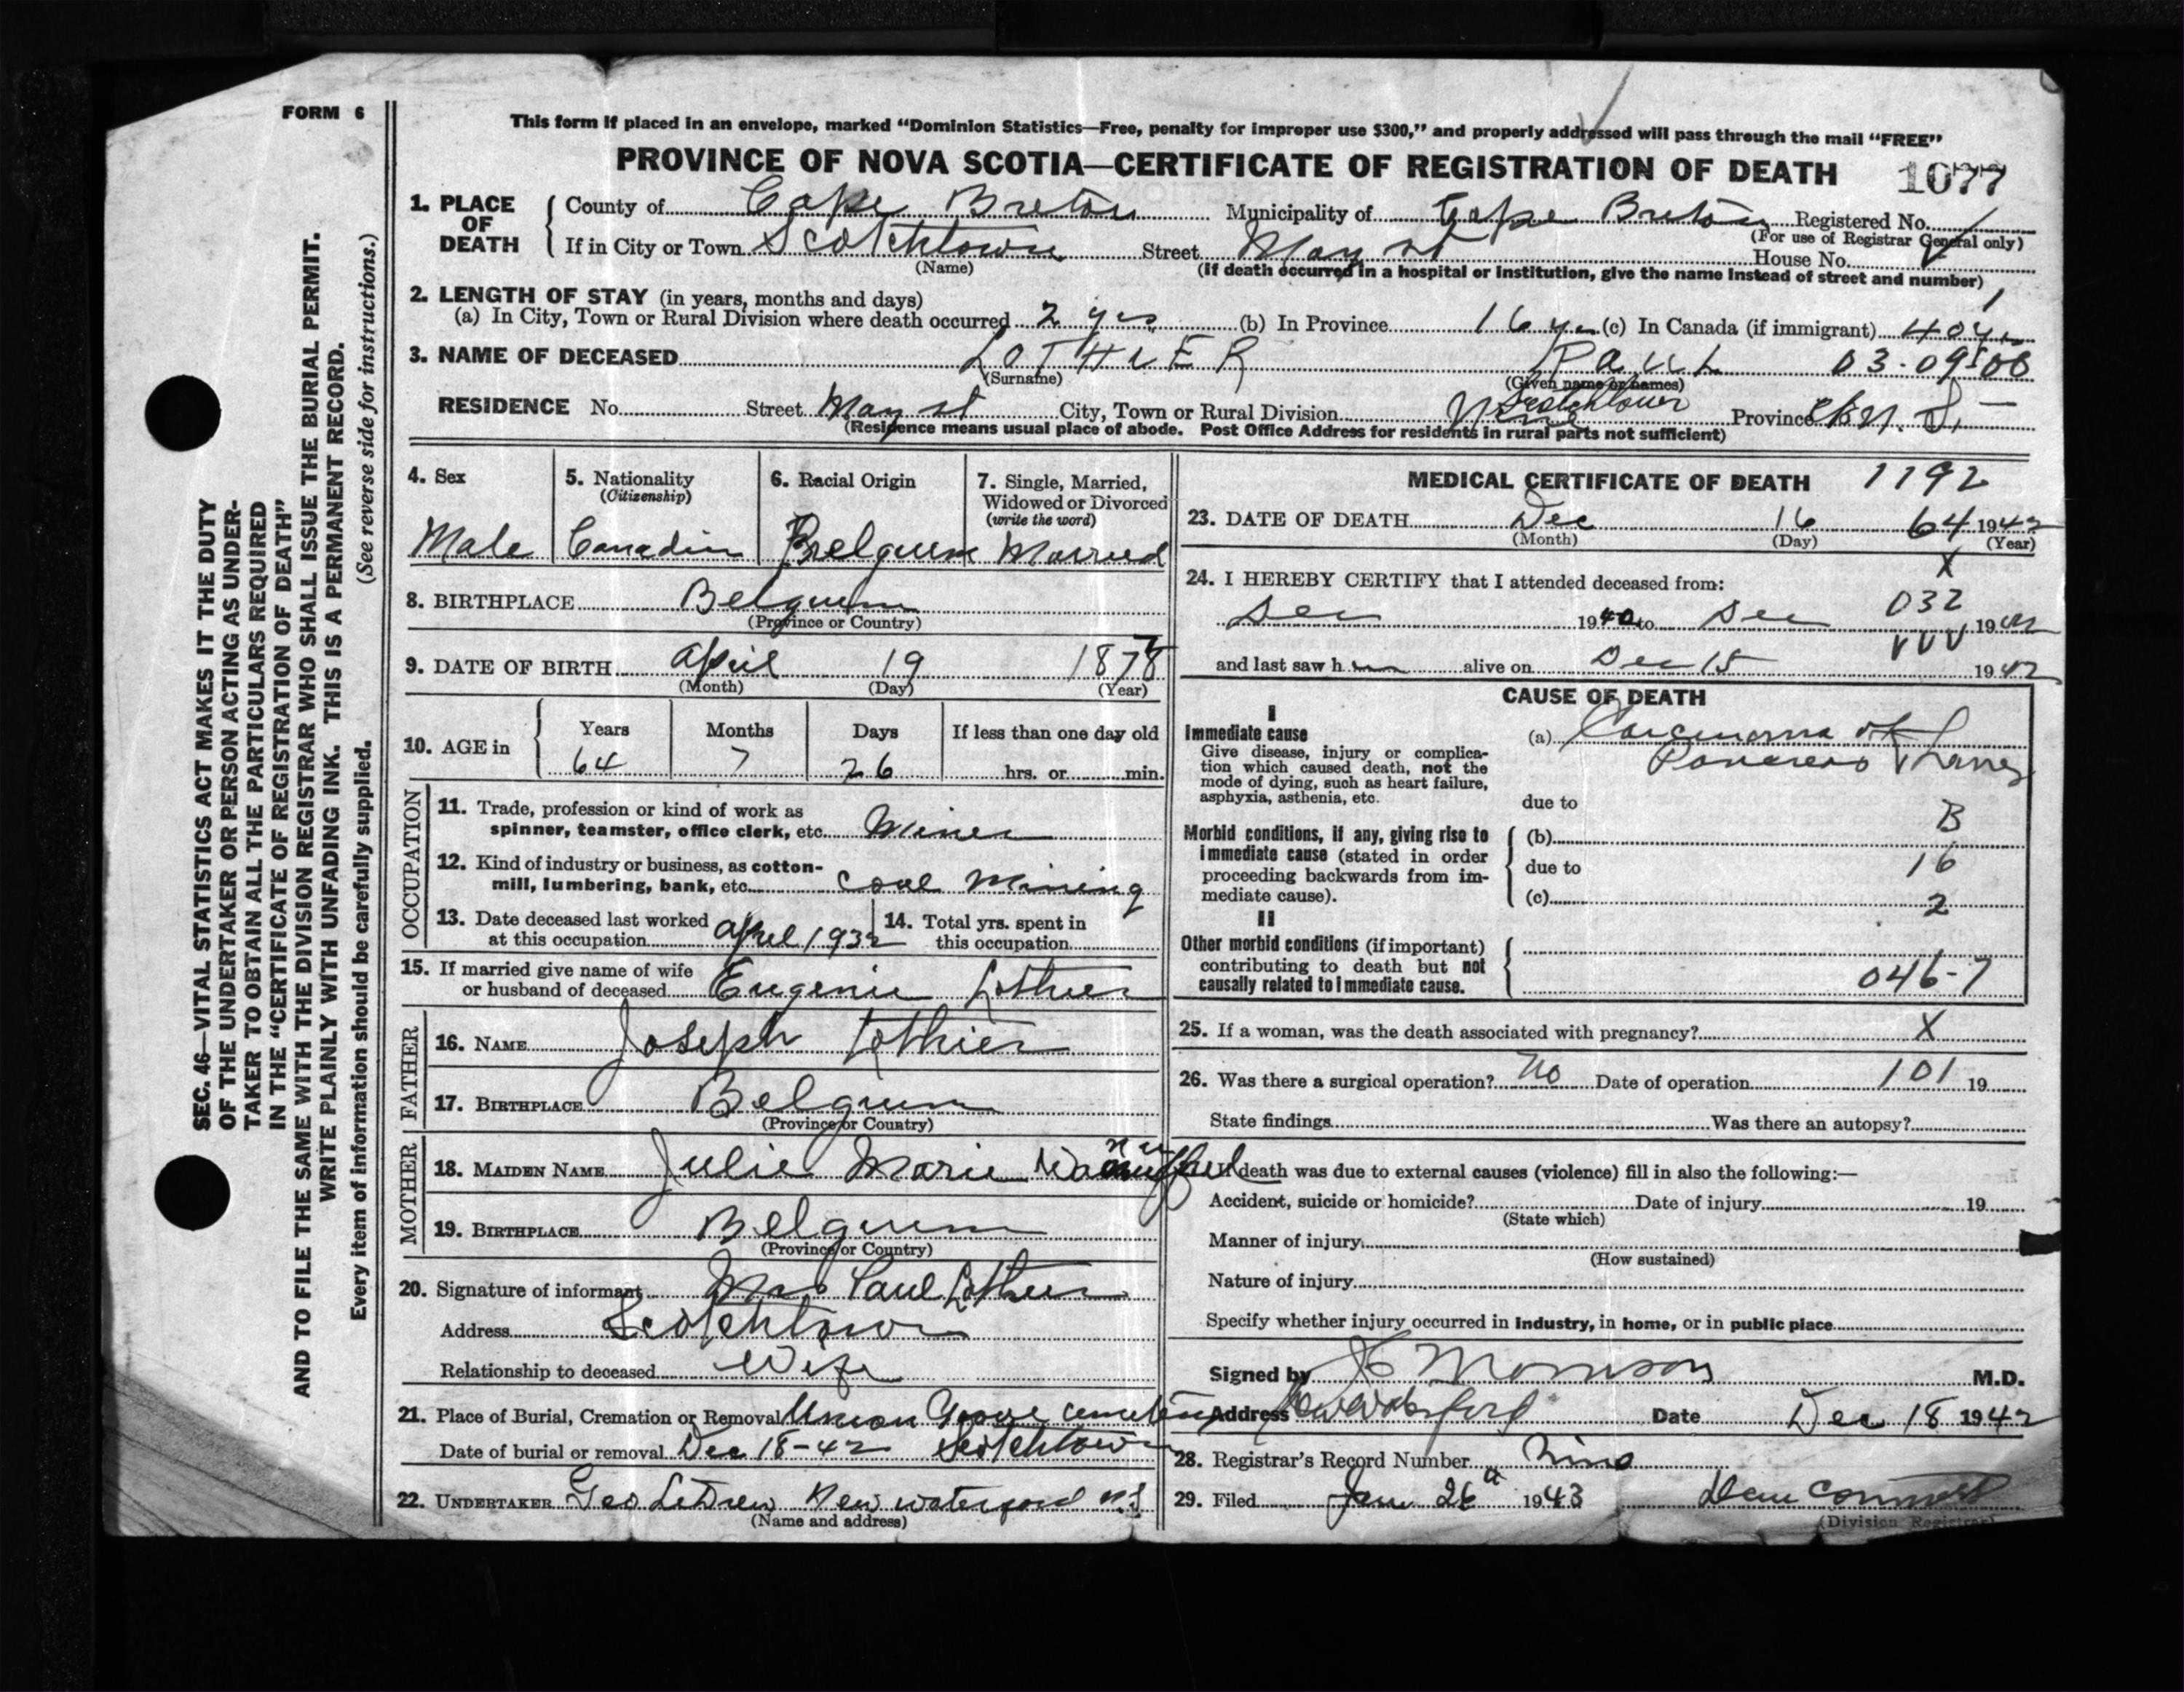 FORM 6
This form if placed in an envelope, marked "Dominion Statistics—Free, penalty for improper use $300," and properly addressed will pass through the mail "FREE"
PROVINCE OF NOVA SCOTIA—CERTIFICATE OF REGISTRATION OF DEATH 1077
SEC. 46—VITAL STATISTICS ACT MAKES IT THE DUTY
OF THE UNDERTAKER OR PERSON ACTING AS UNDER-
TAKER TO OBTAIN ALL THE PARTICULARS REQUIRED
IN THE "CERTIFICATE OF REGISTRATION OF DEATH"
AND TO FILE THE SAME WITH THE DIVISION REGISTRAR WHO SHALL ISSUE THE BURIAL PERMIT.
WRITE PLAINLY WITH UNFADING INK. THIS IS A PERMANENT RECORD.
Every item of information should be carefully supplied. (See reverse side for instructions.)
1. PLACE OF DEATH
County of Cape Breton Municipality of Cape Breton Registered No.
(For use of Registrar General only)
If in City or Town Scotchtown Street May st House No.
(Name)
(If death occurred in a hospital or institution, give the name instead of street and number)
2. LENGTH OF STAY (in years, months and days)
(a) In City, Town or Rural Division where death occurred 2 yrs (b) In Province 16 yrs (c) In Canada (if immigrant) 40 yrs
3. NAME OF DECEASED LOTHIER PAUL 03-09500
(Surname) (Given name or names)
RESIDENCE No. Street May st City, Town or Rural Division Scotchtown Province N. S.
(Residence means usual place of abode. Post Office Address for residents in rural parts not sufficient)
4. Sex
Male
5. Nationality
(Citizenship)
Canadin
6. Racial Origin
Belguem
7. Single, Married,
Widowed or Divorced
(write the word)
Married
8. BIRTHPLACE Belguim
(Province or Country)
9. DATE OF BIRTH April 19 1878
(Month) (Day) (Year)
10. AGE in
Years Months Days If less than one day old
64 7 26 hrs. or min.
OCCUPATION
11. Trade, profession or kind of work as
spinner, teamster, office clerk, etc. Miner
12. Kind of industry or business, as cotton-
mill, lumbering, bank, etc. Coal Mining
13. Date deceased last worked
at this occupation April 1932
14. Total yrs. spent in
this occupation
15. If married give name of wife
or husband of deceased Eugenie Lothier
FATHER
16. NAME Joseph Lothier
17. BIRTHPLACE Belguim
(Province or Country)
MOTHER
18. MAIDEN NAME Julie Marie
19. BIRTHPLACE Belguim
(Province or Country)
20. Signature of informant Mrs Paul Lothier
Address Scotchtown
Relationship to deceased Wife
21. Place of Burial, Cremation or Removal Union Grove cemetery
Date of burial or removal Dec 18-42 Scotchtown
22. UNDERTAKER Geo LeDrew New Waterford N S
(Name and address)
MEDICAL CERTIFICATE OF DEATH 1192
23. DATE OF DEATH Dec 16 64 1942
(Month) (Day) (Year)
X
24. I HEREBY CERTIFY that I attended deceased from:
032
Dec 1940 to Dec 1942
VVV
and last saw him alive on Dec 15 1942
CAUSE OF DEATH
I
Immediate cause
Give disease, injury or complica-
tion which caused death, not the
mode of dying, such as heart failure,
asphyxia, asthenia, etc.
(a) Carcinoma of
Pancreas
due to
B
Morbid conditions, if any, giving rise to
immediate cause (stated in order
proceeding backwards from im-
mediate cause).
(b)
due to 16
(c) 2
II
Other morbid conditions (if important)
contributing to death but not
causally related to immediate cause.
046-7
25. If a woman, was the death associated with pregnancy? X
26. Was there a surgical operation? No Date of operation 101 19
State findings Was there an autopsy?
If death was due to external causes (violence) fill in also the following:—
Accident, suicide or homicide? Date of injury 19
(State which)
Manner of injury
(How sustained)
Nature of injury
Specify whether injury occurred in industry, in home, or in public place
Signed by Morrison M.D.
Address New Waterford Date Dec 18 1942
28. Registrar's Record Number Nine
29. Filed Jan 26 1943 Dan
(Division Registrar)